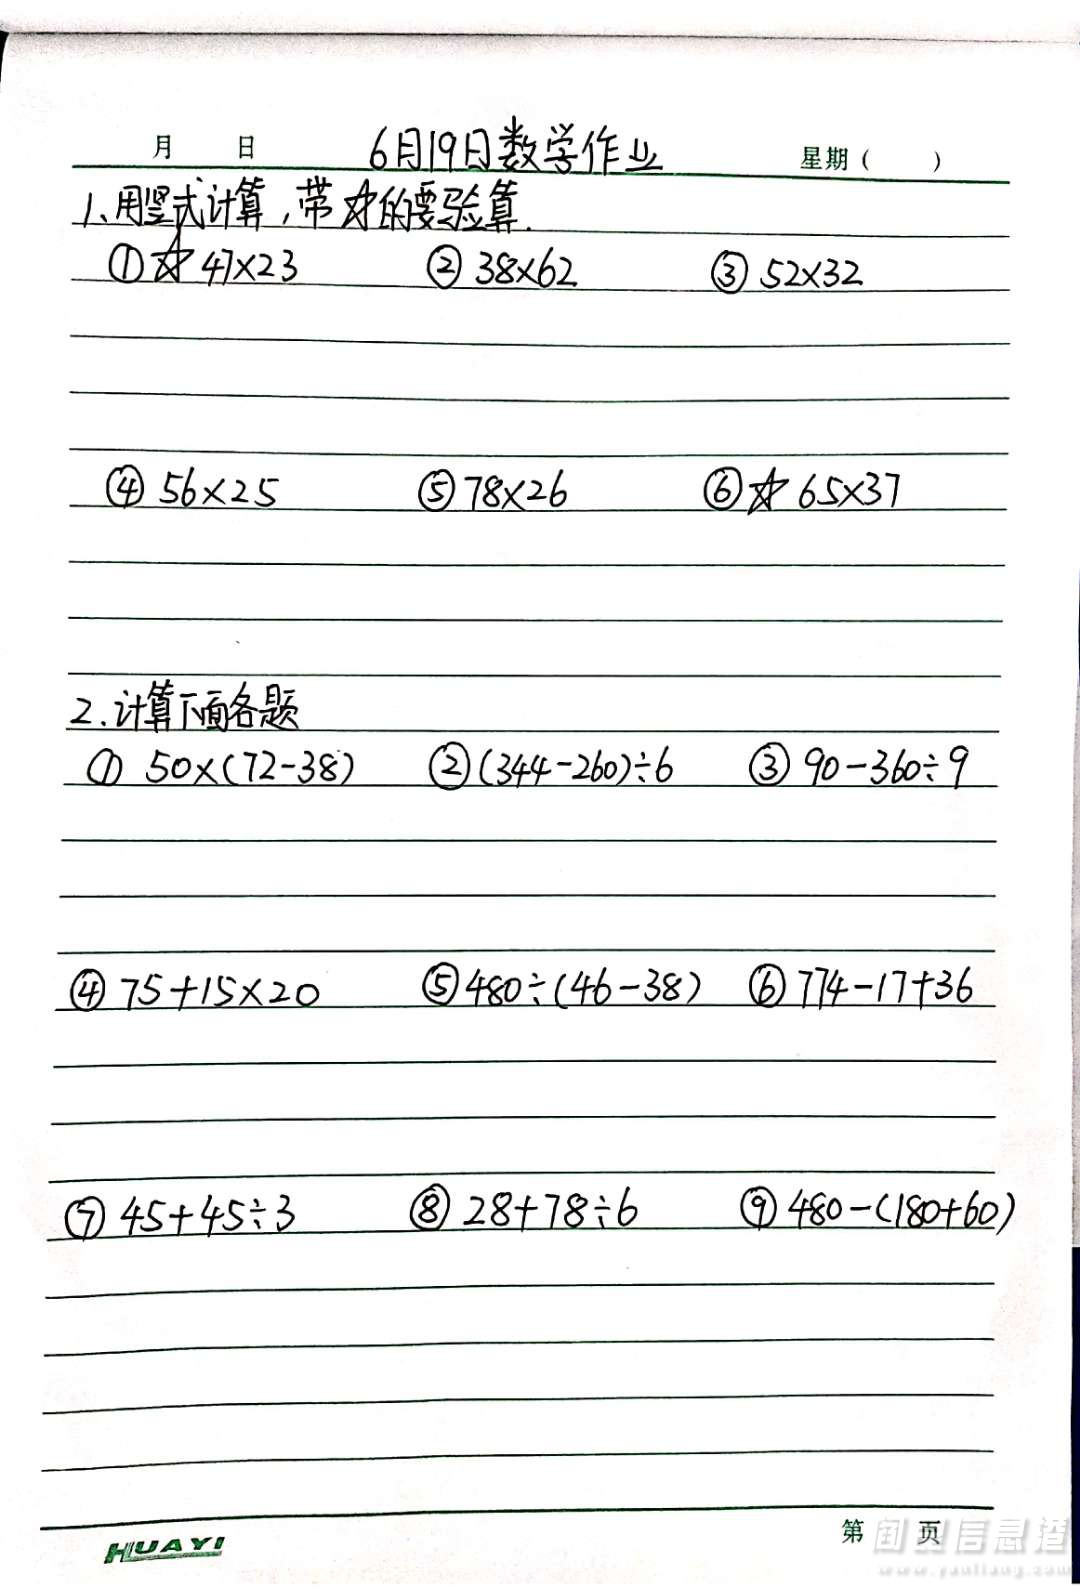 月 日 6月19日数学作业 星期（ ）
1、用竖式计算,带☆的要验算.
①☆47×23 ②38×62 ③52×32
④56×25 ⑤78×26 ⑥☆65×37
2.计算下面各题
① 50×(72-38) ②(344-260)÷6 ③90-360÷9
④75+15×20 ⑤480÷(46-38) ⑥774-17+36
⑦45+45÷3 ⑧28+78÷6 ⑨480-(180+60)
HUAYI 第 页
信息港
www.yanliang.com